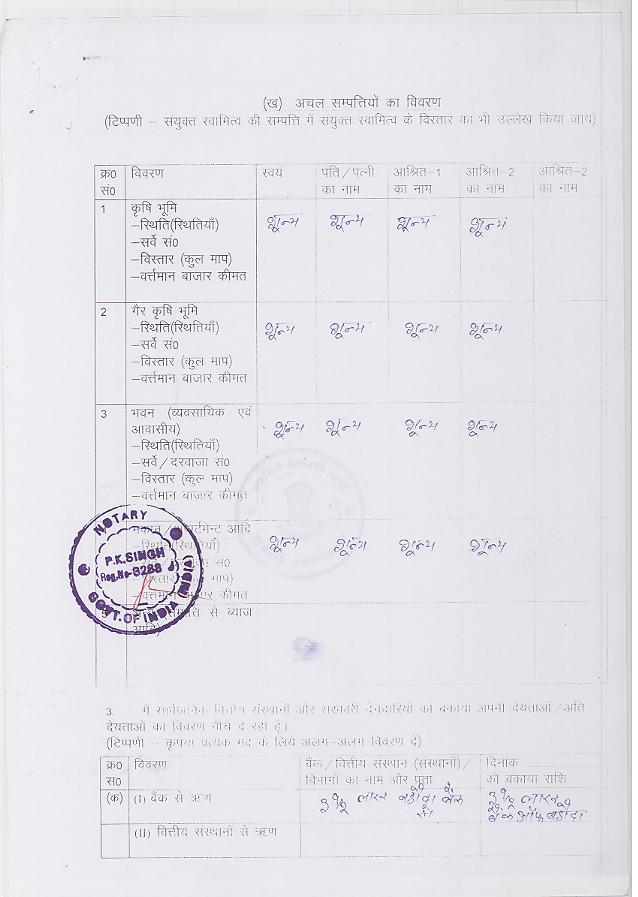 (ख) अचल सम्पत्तियों का विवरण
(टिप्पणी – संयुक्त स्वामित्व की सम्पत्ति में संयुक्त स्वामित्व के विस्तार का भी उल्लेख किया जाय)
क्र0 विवरण स्वयं पति/पत्नी आश्रित-1 आश्रित-2 आश्रित-2
सं0 का नाम का नाम का नाम का नाम
1 कृषि भूमि
–स्थिति(स्थितियाँ) शून्य शून्य शून्य शून्य
–सर्वे सं0
–विस्तार (कुल माप)
–वर्त्तमान बाजार कीमत
2 गैर कृषि भूमि
–स्थिति(स्थितियाँ) शून्य शून्य शून्य शून्य
–सर्वे सं0
–विस्तार (कुल माप)
–वर्त्तमान बाजार कीमत
3 भवन (व्यवसायिक एवं
आवासीय) शून्य शून्य शून्य शून्य
–स्थिति(स्थितियाँ)
–सर्वे/दरवाजा सं0
–विस्तार (कुल माप)
–वर्त्तमान बाजार कीमत
NOTARY
P.K.SINGH
Reg.No-8288
GOVT.OF INDIA (INDIA)
आदि
शून्य शून्य शून्य शून्य
सं0
माप)
कीमत
से ब्याज
3. में वित्तीय संस्थानों और सरकारी देनदारियों का बकाया अपनी देयताओं/अति
देयताओं का विवरण नीचे दे रहा हूं।
(टिप्पणी – कृपया प्रत्येक मद के लिये अलग-अलग विवरण दें)
क्र0 विवरण बैंक/वित्तीय संस्थान (संस्थानों)/ दिनांक ..........
स0 विभागों का नाम और पता को बकाया राशि
(क) (I) बैंक से ऋण लाख बड़ौदा बैंक लाख
बैंक ऑफ बड़ौदा
(II) वित्तीय संस्थानों से ऋण